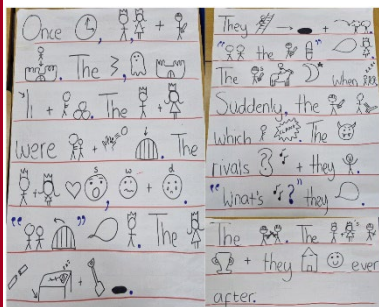 Once
. The
+ . The +
were + . The
+ s , w + d .
" " . The
+ .
They → +
" the " .
The when
Suddenly, the
which . The
rivals + they .
" What's ? " they .
The . The
+ they ever
after.